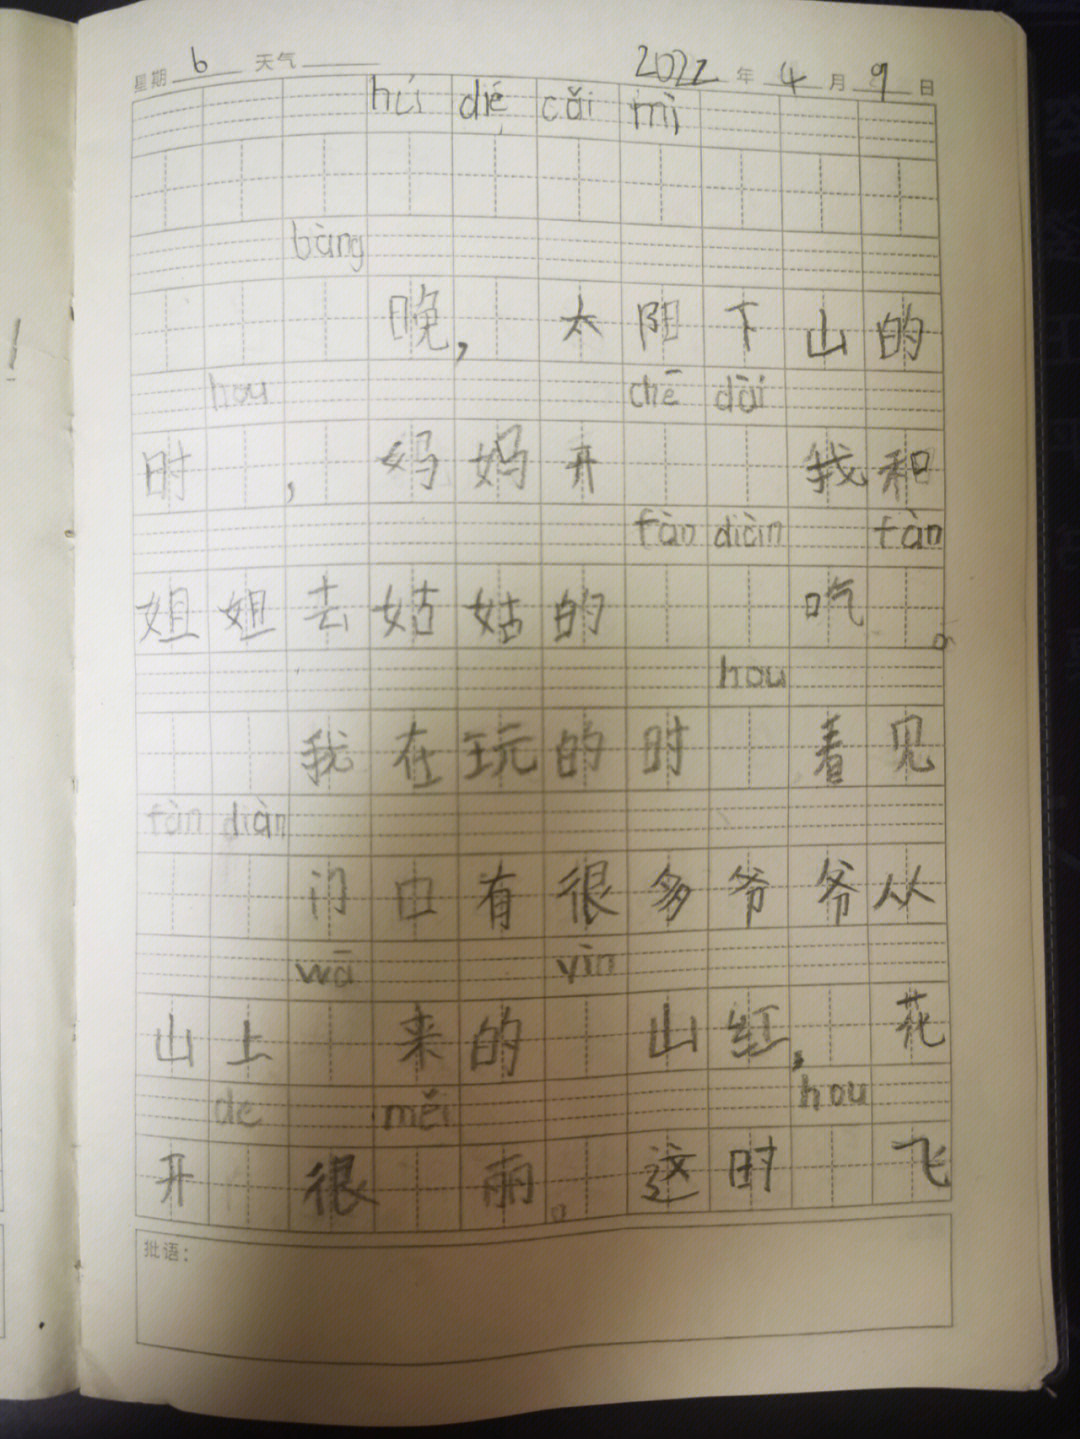 星期 6 天气 2022 年 4 月 9 日
hú dié cǎi mì
bàng
晚，太阳下山的
hou chē dài
时，妈妈开我和
fàn diàn fàn
姐姐去姑姑的吃。
hou
我在玩的时看见
fàn diàn
门口有很多爷爷从
wā yìn
山上来的山红，花
de měi hou
开很丽。这时飞
批语：